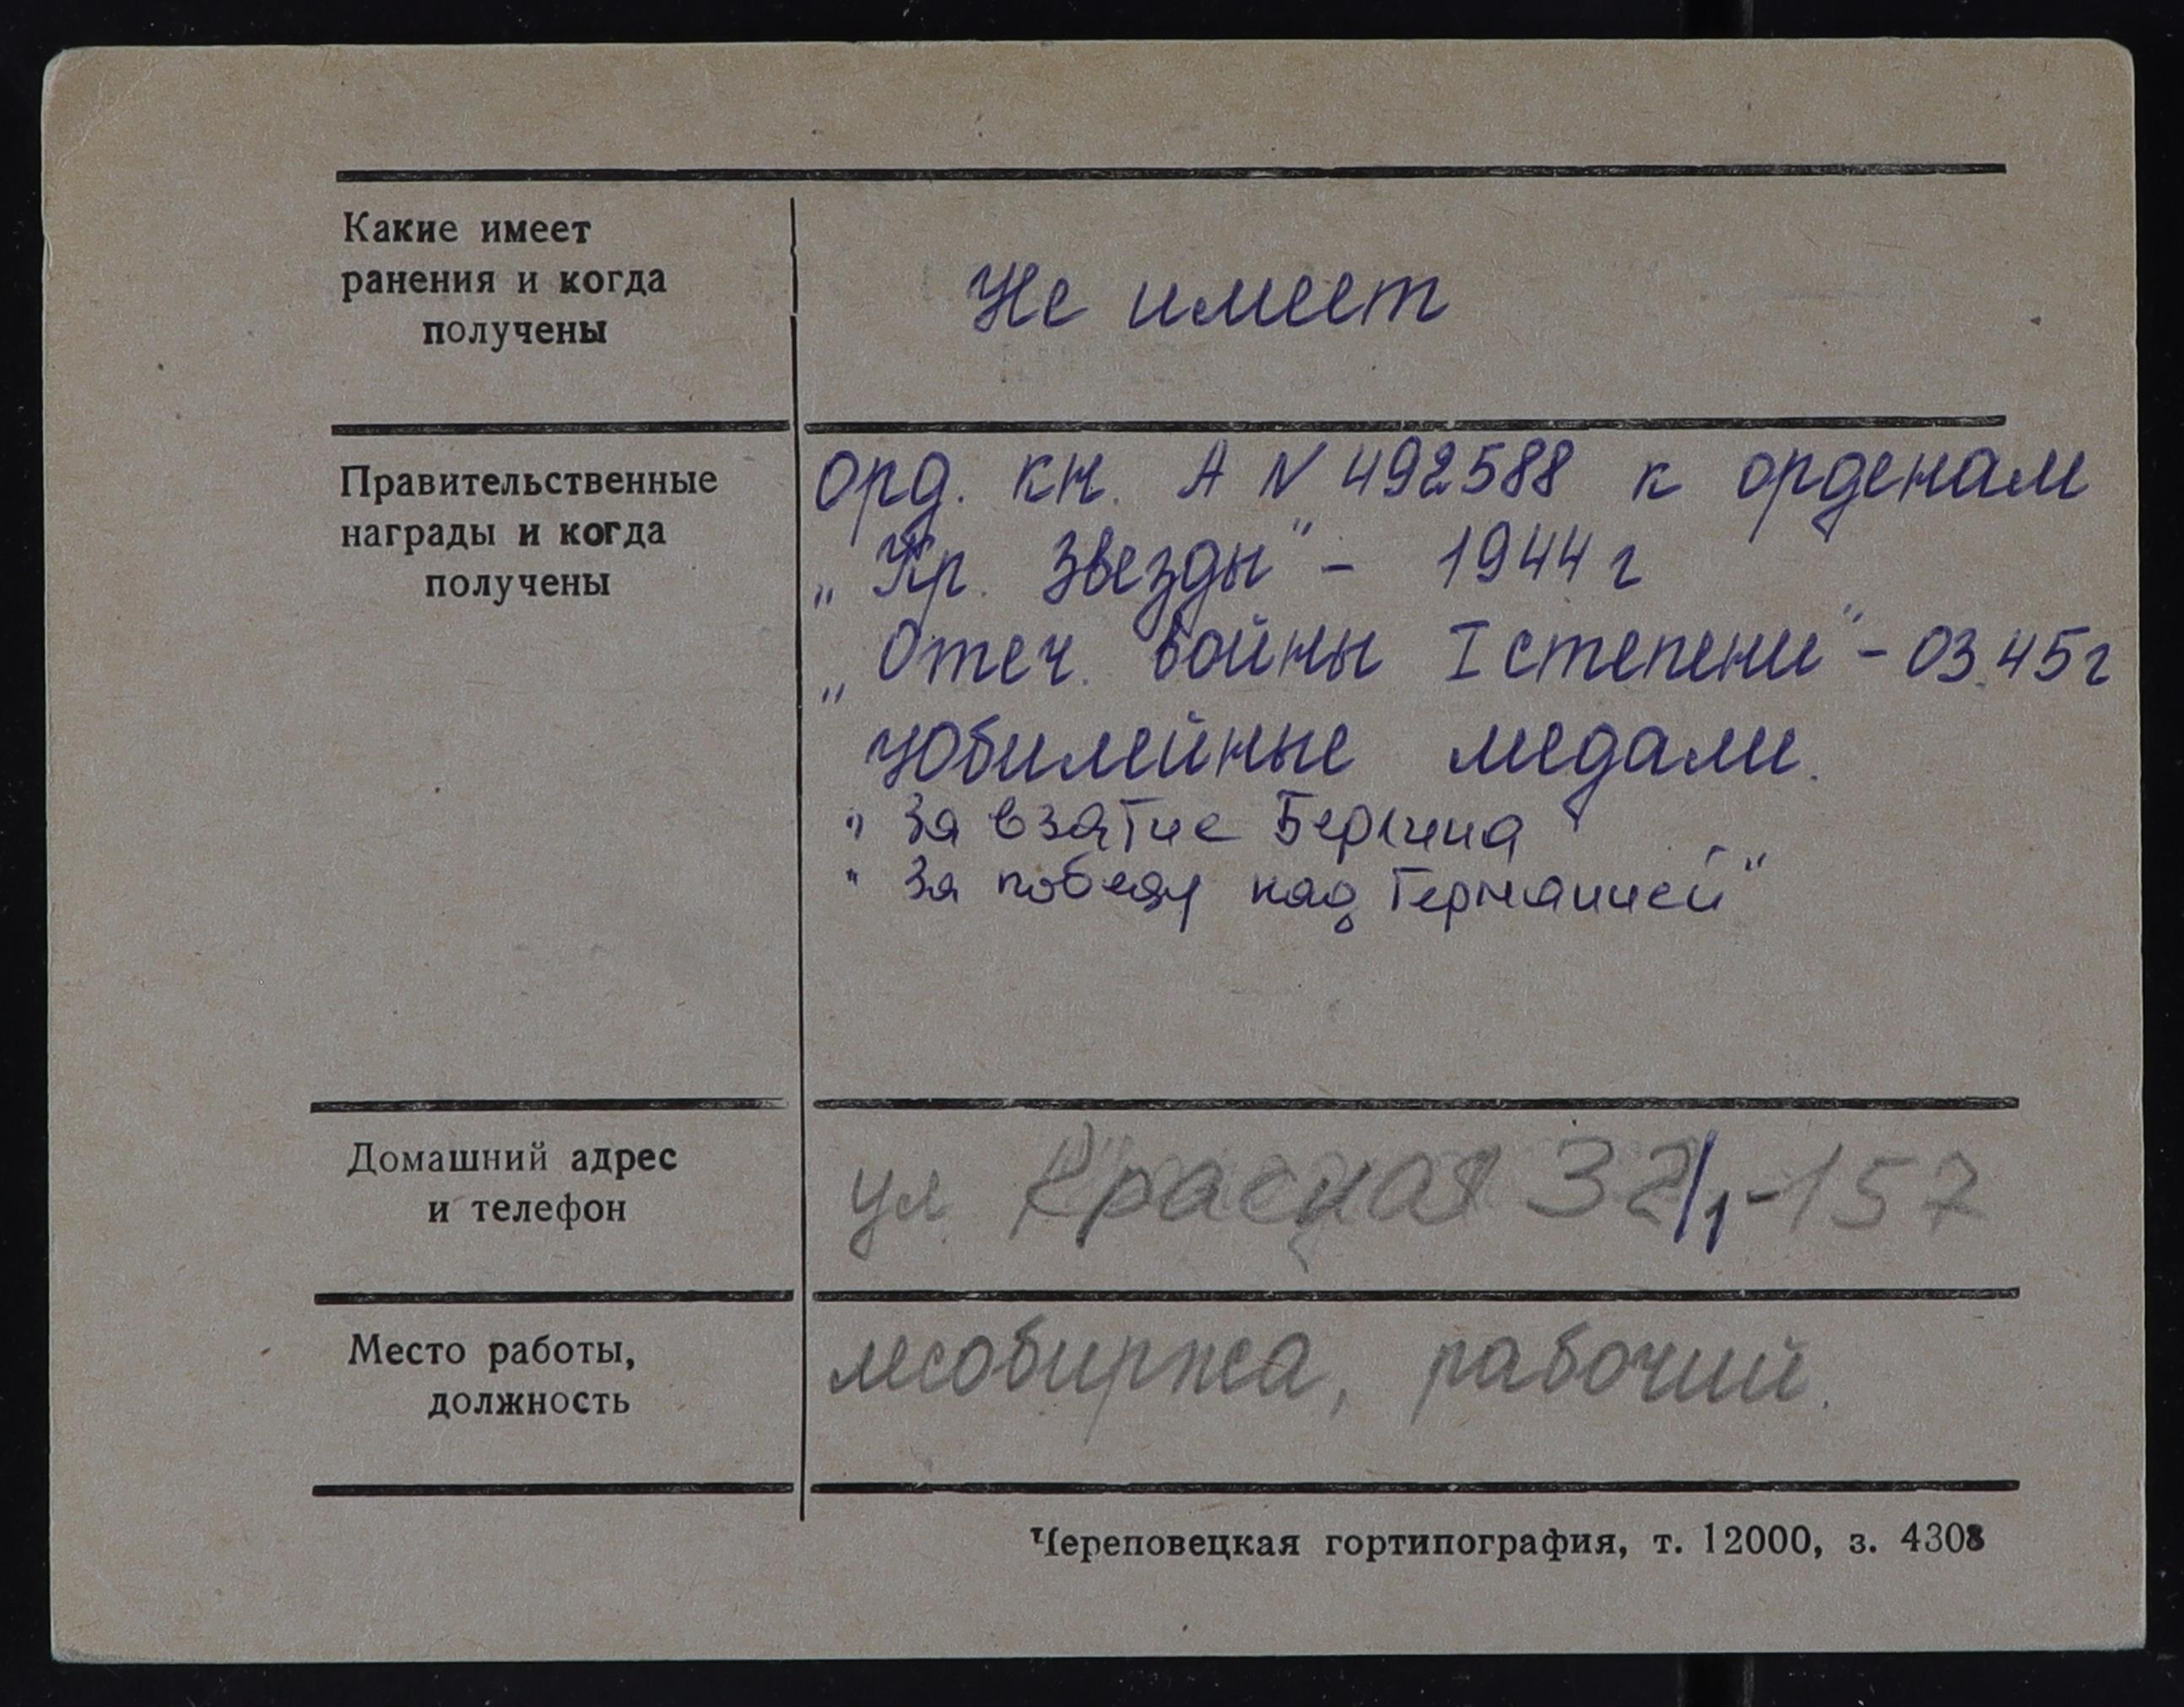 Какие имеет
ранения и когда
получены
Не имеет
Правительственные
награды и когда
получены
Орд. кн. А N 492588 к орденам
„Кр. Звезды" - 1944 г
„Отеч. войны I степени" - 03.45 г
Юбилейные медали.
" За взятие Берлина
" За победу над Германией"
Домашний адрес
и телефон
ул. Красная 32/1-157
Место работы,
должность
лесобиржа, рабочий.
Череповецкая гортипография, т. 12000, з. 4308